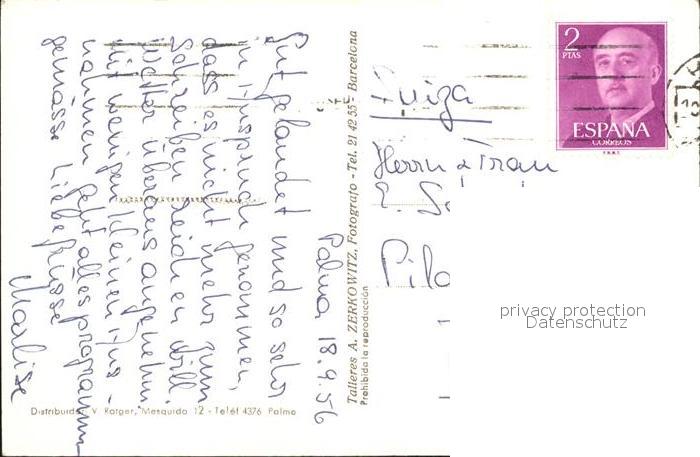 Palma 18.9.56
Gut gelandet und so sehr
in Anspruch genommen,
dass es nicht mehr zum
Schreiben reichen will.
Wetter überaus angenehm
mit wenigen kleinen Aus-
nahmen. Geht alles programm
gemäss. Liebe Grüsse
Marlise
Talleres A. ZERKOWITZ, Fotografo - Tel. 21 42 55 - Barcelona
Prohibida la reproducción
Distribuidor V. Rotger, Mesquida 12 - Teléf 4376 Palma
2
PTAS
ESPAÑA
CORREOS
F.N.M.T.
Suiza
Herrn & Frau
E. S
Pila
privacy protection
Datenschutz